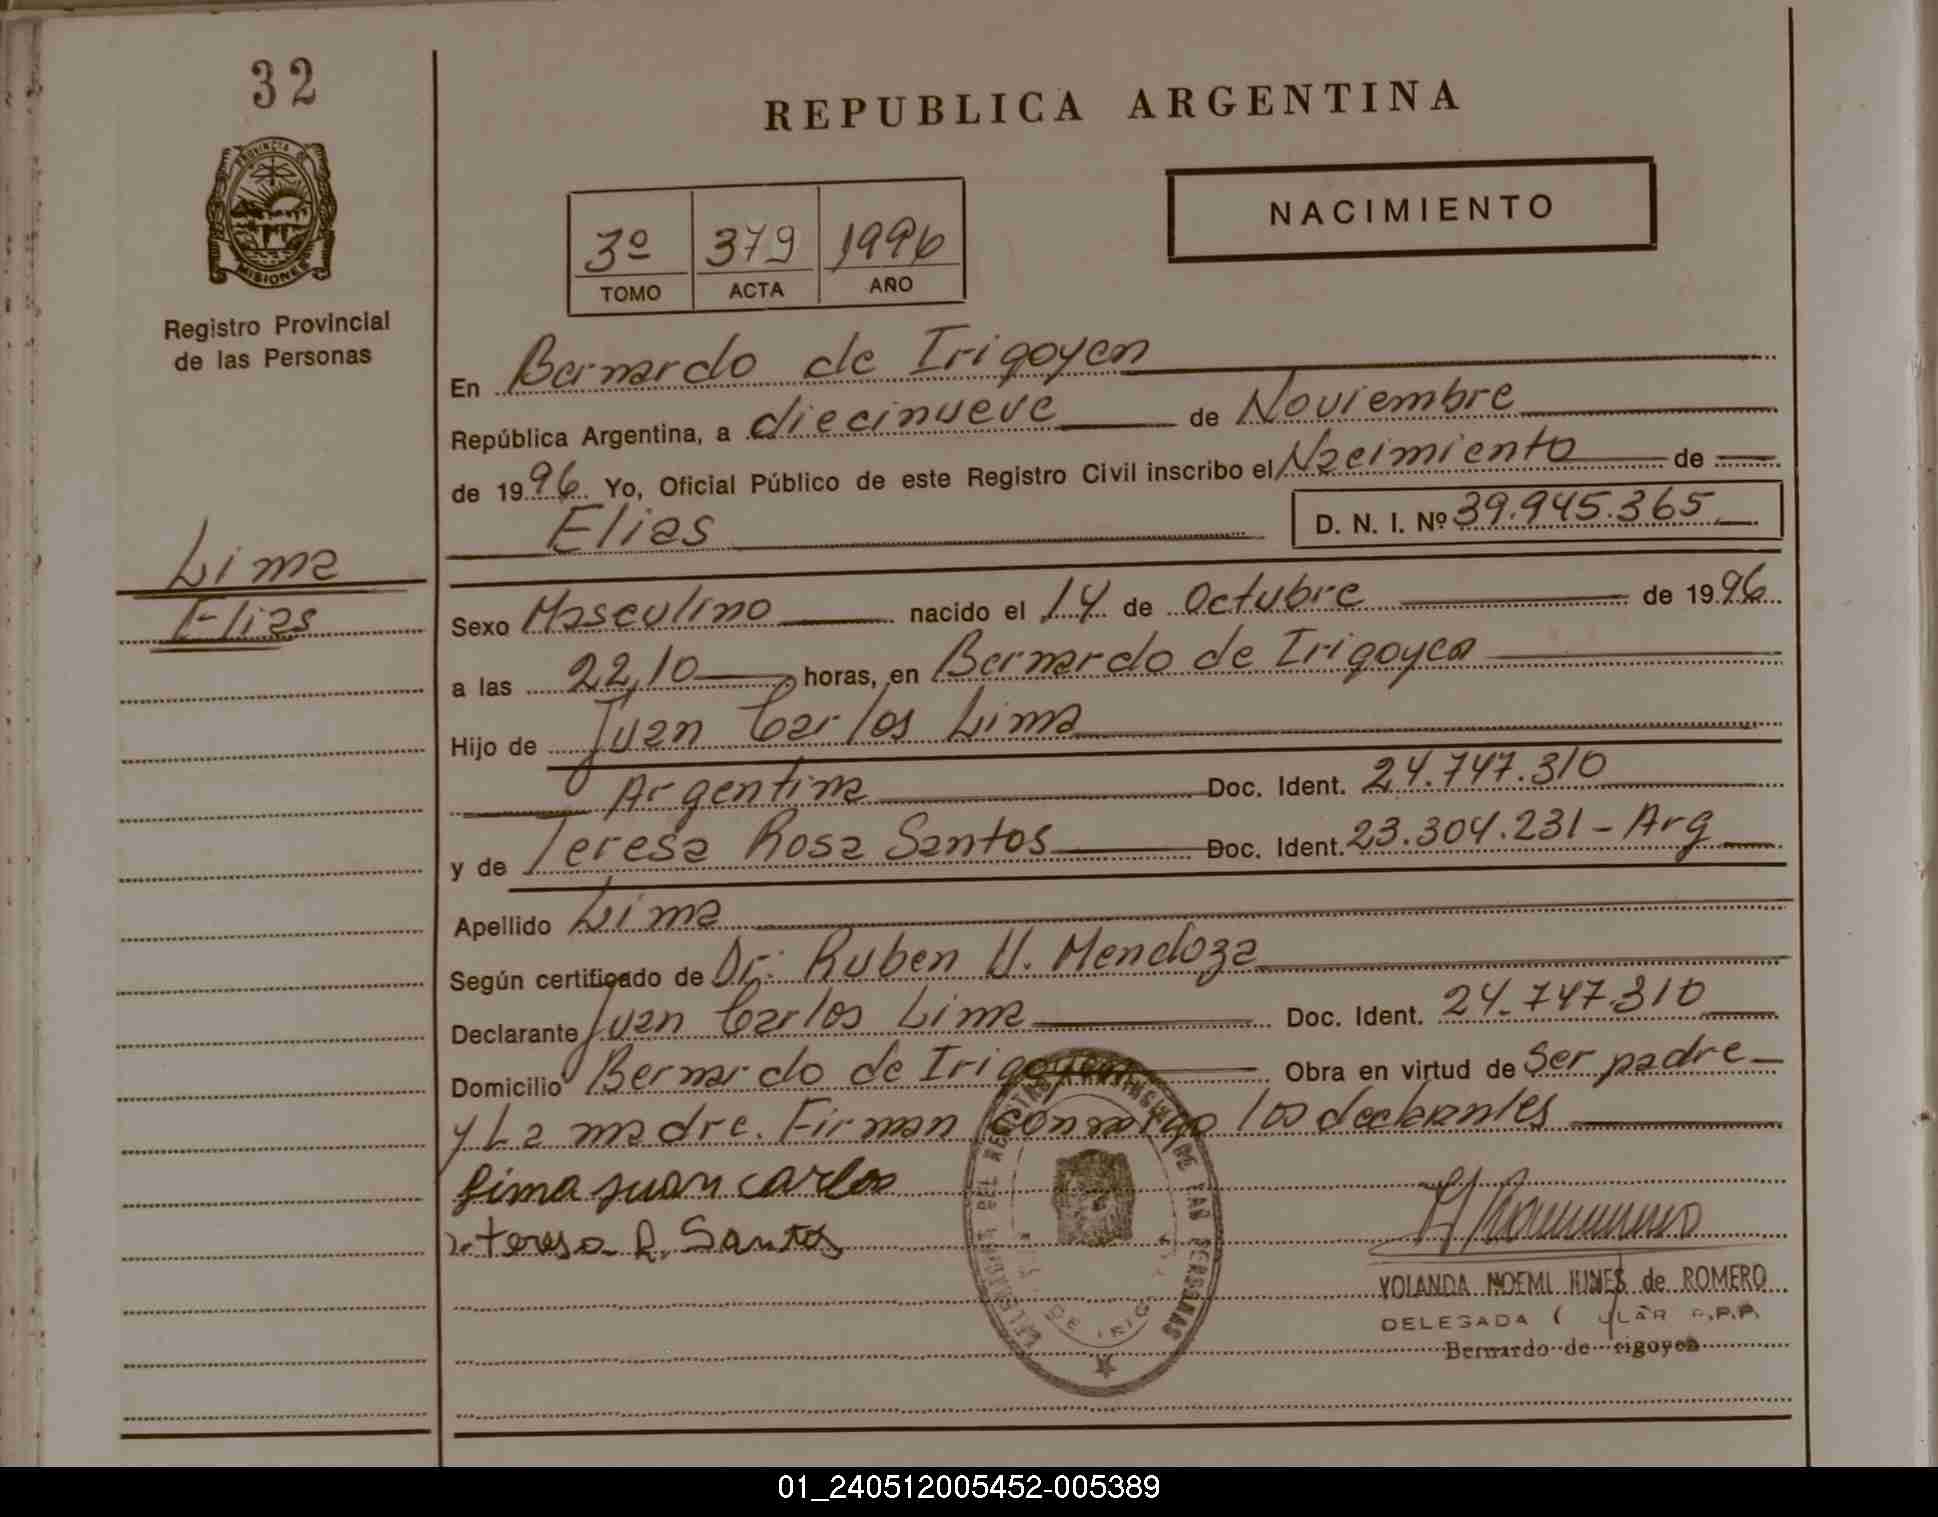 32
REPUBLICA ARGENTINA
PROVINCIA DE
MISIONES
Registro Provincial
de las Personas
NACIMIENTO
3º 379 1996
TOMO ACTA AÑO
En Bernardo de Irigoyen
República Argentina, a diecinueve de Noviembre
de 1996. Yo, Oficial Público de este Registro Civil inscribo el Nacimiento de
Elias D. N. I. Nº 39.945.365
Lima
Elias
Sexo Masculino nacido el 14 de Octubre de 1996
a las 22,10 horas, en Bernardo de Irigoyen
Hijo de Juan Carlos Lima
Argentina Doc. Ident. 24.747.310
y de Teresa Rosa Santos Doc. Ident. 23.304.231 - Arg
Apellido Lima
Según certificado de Dr: Ruben U. Mendoza
Declarante Juan Carlos Lima Doc. Ident. 24.747.310
Domicilio Bernardo de Irigoyen Obra en virtud de Ser padre
y La madre. Firman conmigo los declarantes
Lima Juan Carlos
Teresa R. Santos
YOLANDA NOEMI de ROMERO
DELEGADA R.P.P.
Bernardo de Irigoyen
01_240512005452-005389